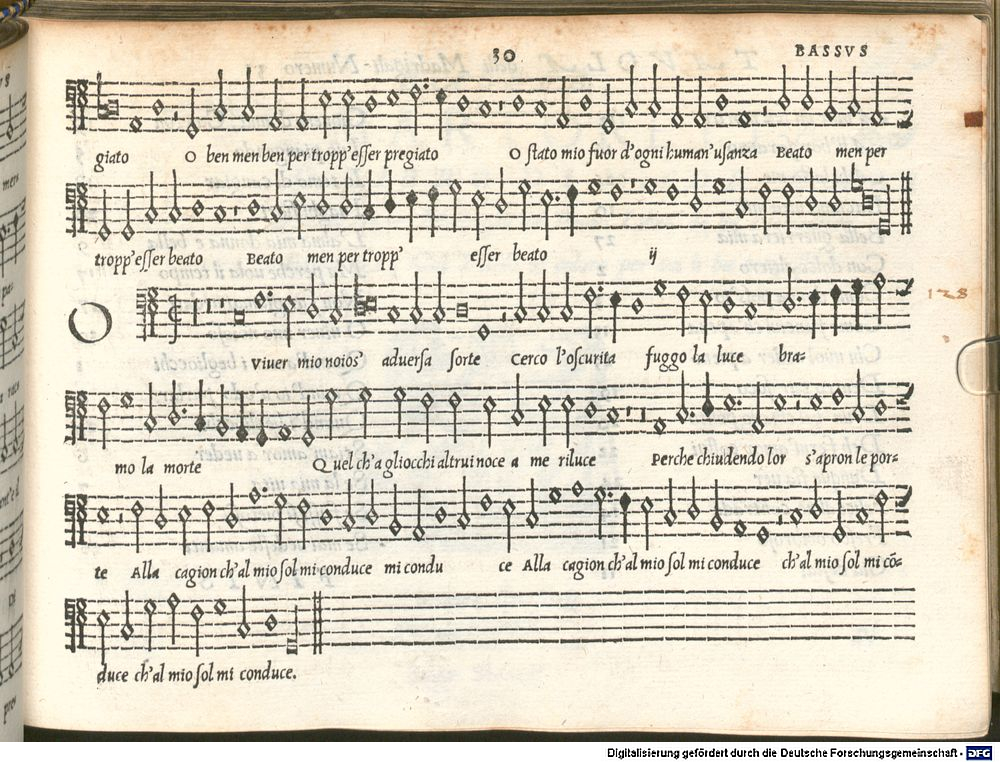 30 BASSVS
giato O ben men ben per tropp'esser pregiato O stato mio fuor d'ogni human'usanza Beato men per
tropp'esser beato Beato men per tropp' esser beato ij
128
O Viuer mio noios' aduersa sorte Cerco l'oscurita fuggo la luce bra-
mo la morte Quel ch'a gliocchi altrui noce a me riluce Perche chiudendo lor s'apron le por-
te Alla cagion ch'al mio sol mi conduce mi condu ce Alla cagion ch'al mio sol mi conduce ch'al mio sol mi cō-
duce ch'al mio sol mi conduce.
Digitalisierung gefördert durch die Deutsche Forschungsgemeinschaft - DFG